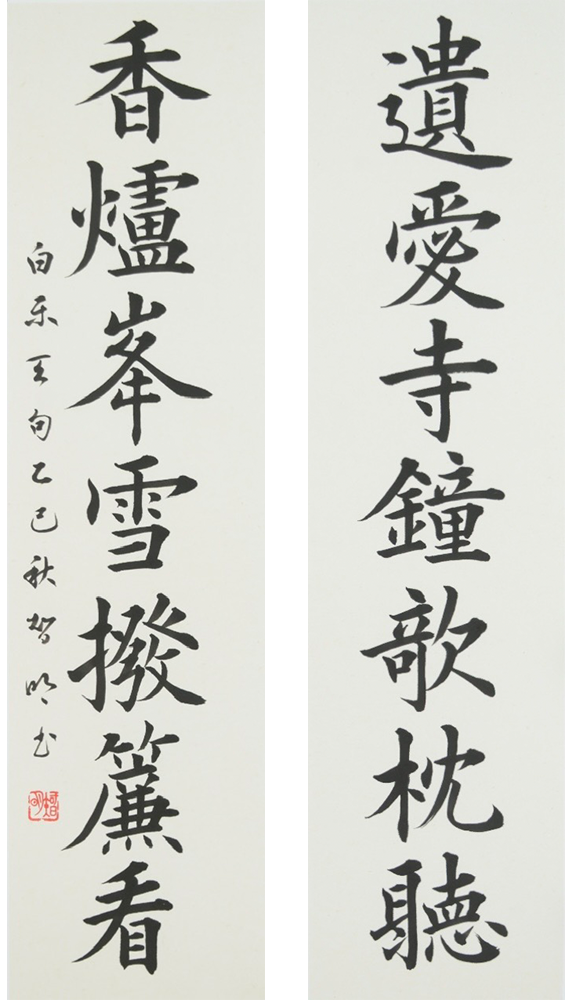 遺愛寺鐘欹枕聽
香爐峯雪撥簾看
白乐天句乙巳秋智明书
智明